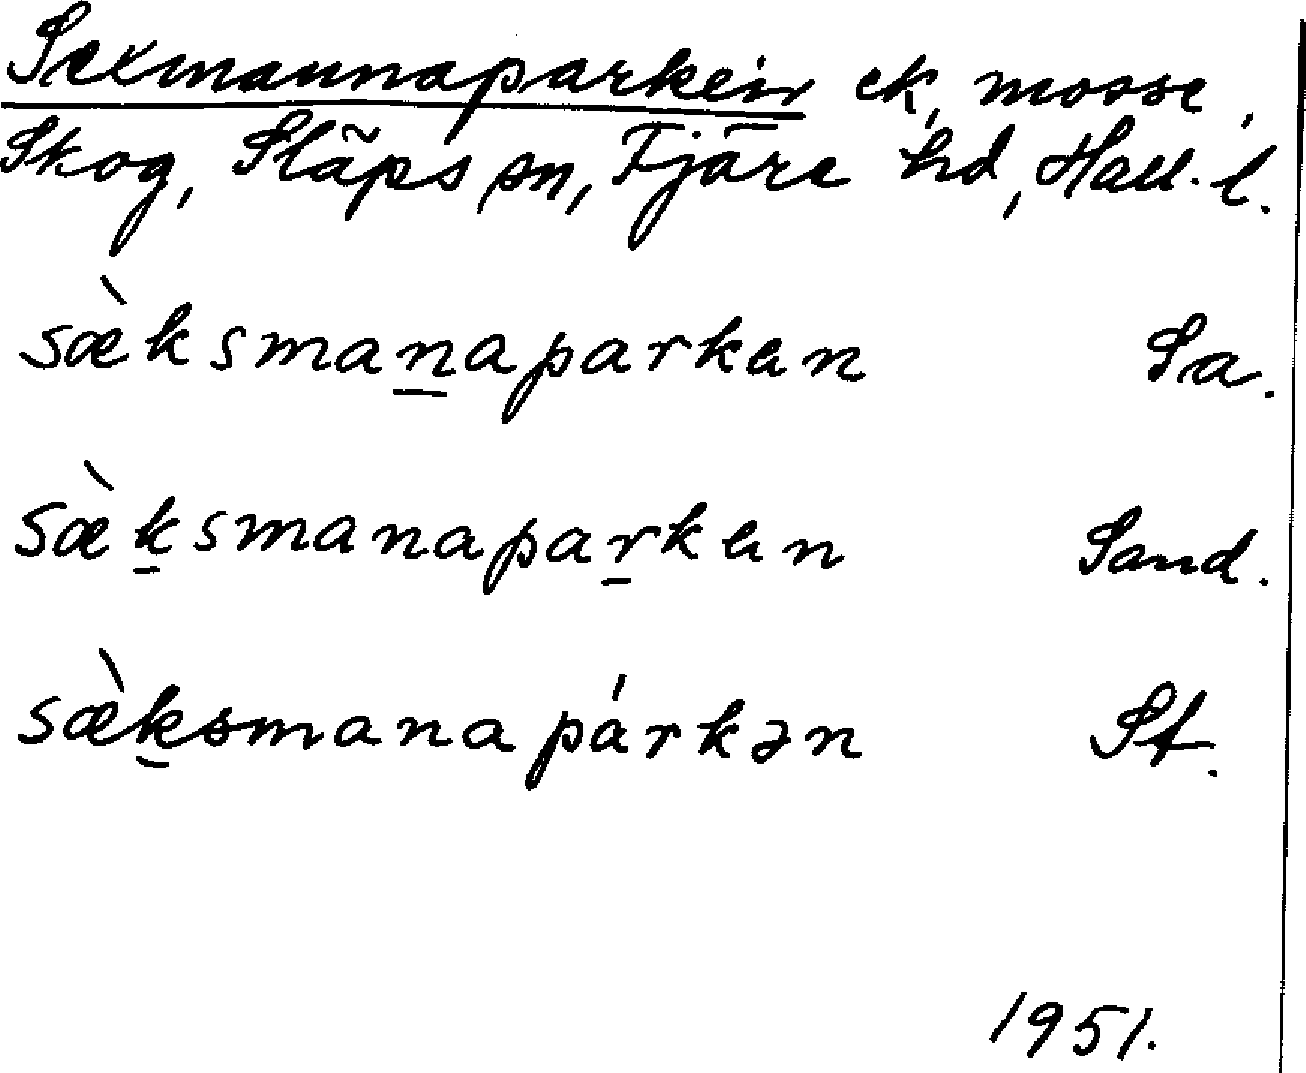 Sexmannaparken ck, mosse,
Skog, Släps sn, Fjäre hd, Hall. l.
sæ̀ksmaṉaparkɐn Sa.
sæ̀ḵsmanapaṟkɐn Sand.
sæ̀ḵsmanapárkən St.
1951.